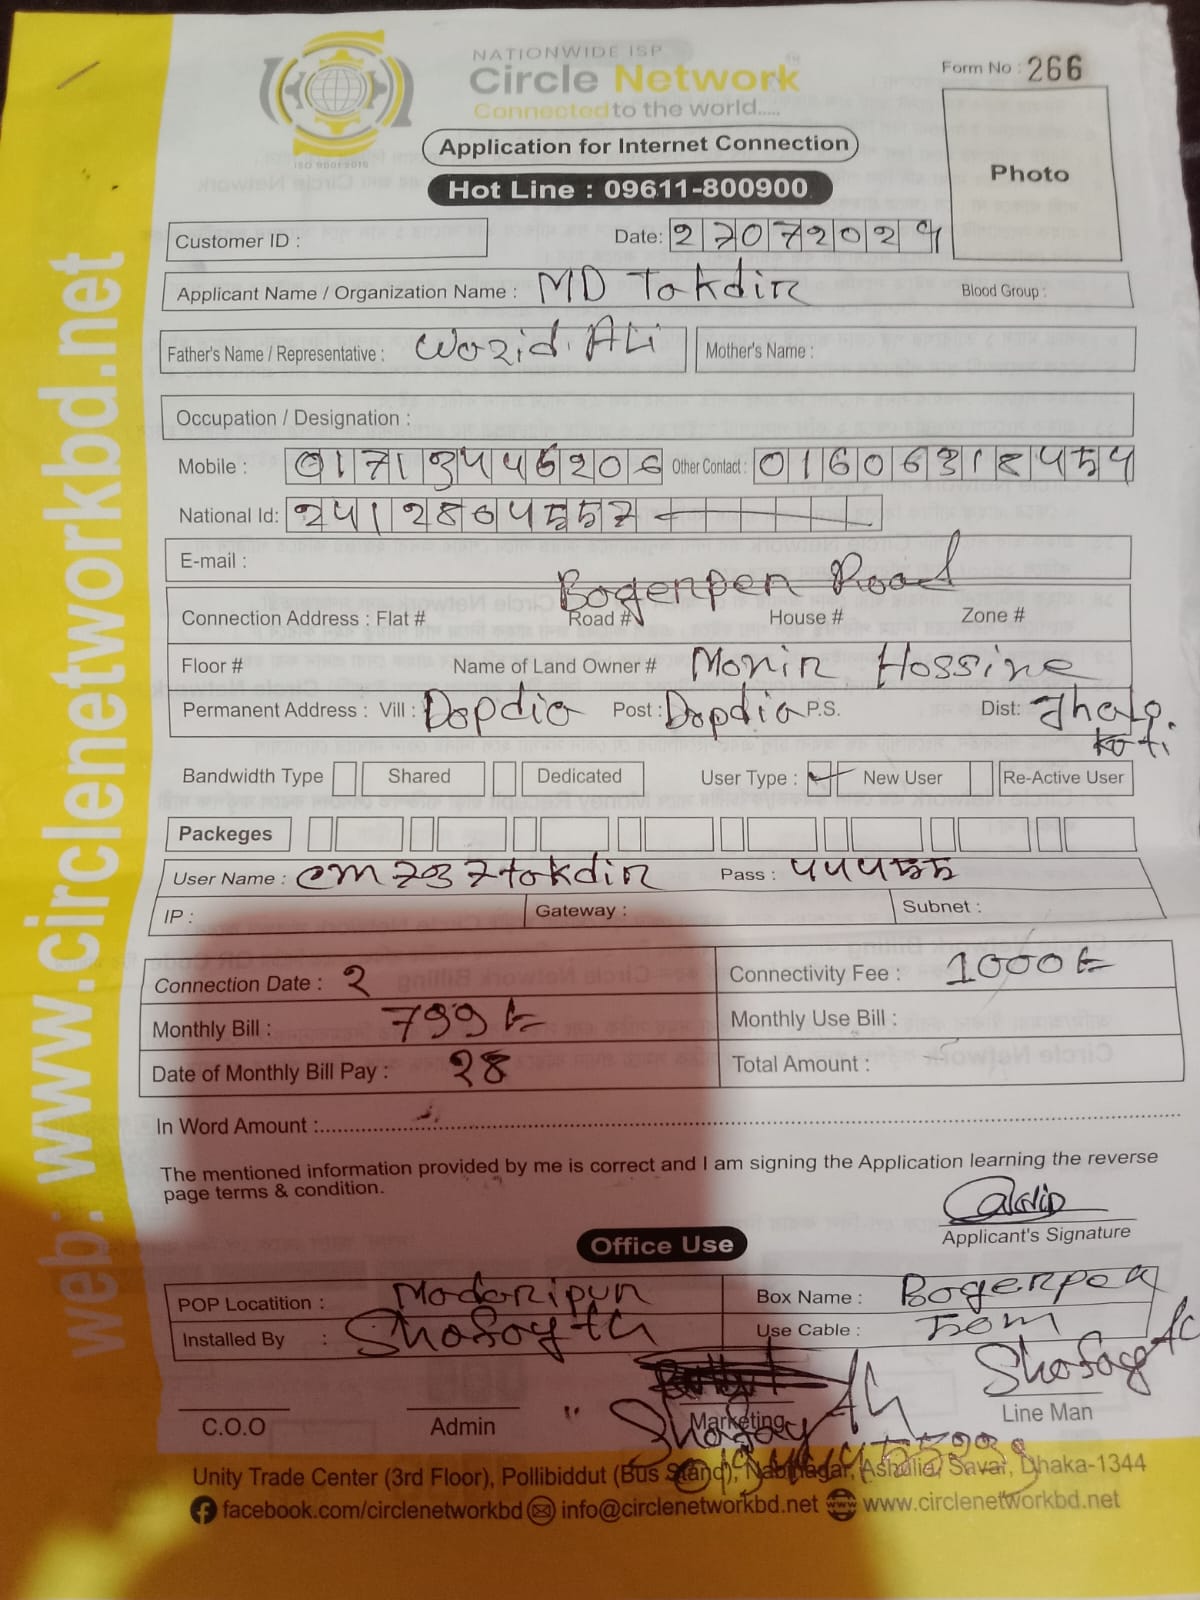 NATIONWIDE ISP
Circle Network
Connected to the world.....
ISO 9001:2015
Form No : 266
Application for Internet Connection
Hot Line : 09611-800900
Photo
Customer ID :
Date: 27072024
Applicant Name / Organization Name : MD Takdir
Blood Group :
Father's Name / Representative : Wozid. Ali
Mother's Name :
Occupation / Designation :
Mobile : Other Contact :
National Id:
E-mail :
Bogerper Road
Connection Address : Flat # Road # House # Zone #
Floor # Name of Land Owner # Monir Hossine
Permanent Address : Vill : Dopdia Post : Dopdia P.S. Dist: Jhalo.
koti
Bandwidth Type Shared Dedicated User Type : New User Re-Active User
Packeges
User Name : cm7937takdir Pass : 444555
IP : Gateway : Subnet :
Connection Date : 2 Connectivity Fee : 1000 ৳
Monthly Bill : 799 ৳ Monthly Use Bill :
Date of Monthly Bill Pay : 28 Total Amount :
In Word Amount :
The mentioned information provided by me is correct and I am signing the Application learning the reverse
page terms & condition.
Applicant's Signature
Office Use
POP Locatition : Madaripur Box Name :
Installed By : Use Cable :
C.O.O Admin Marketing Line Man
Unity Trade Center (3rd Floor), Pollibiddut (Bus Stand), Nabinagar, Ashulia, Savar, Dhaka-1344
facebook.com/circlenetworkbd info@circlenetworkbd.net www.circlenetworkbd.net
web: www.circlenetworkbd.net